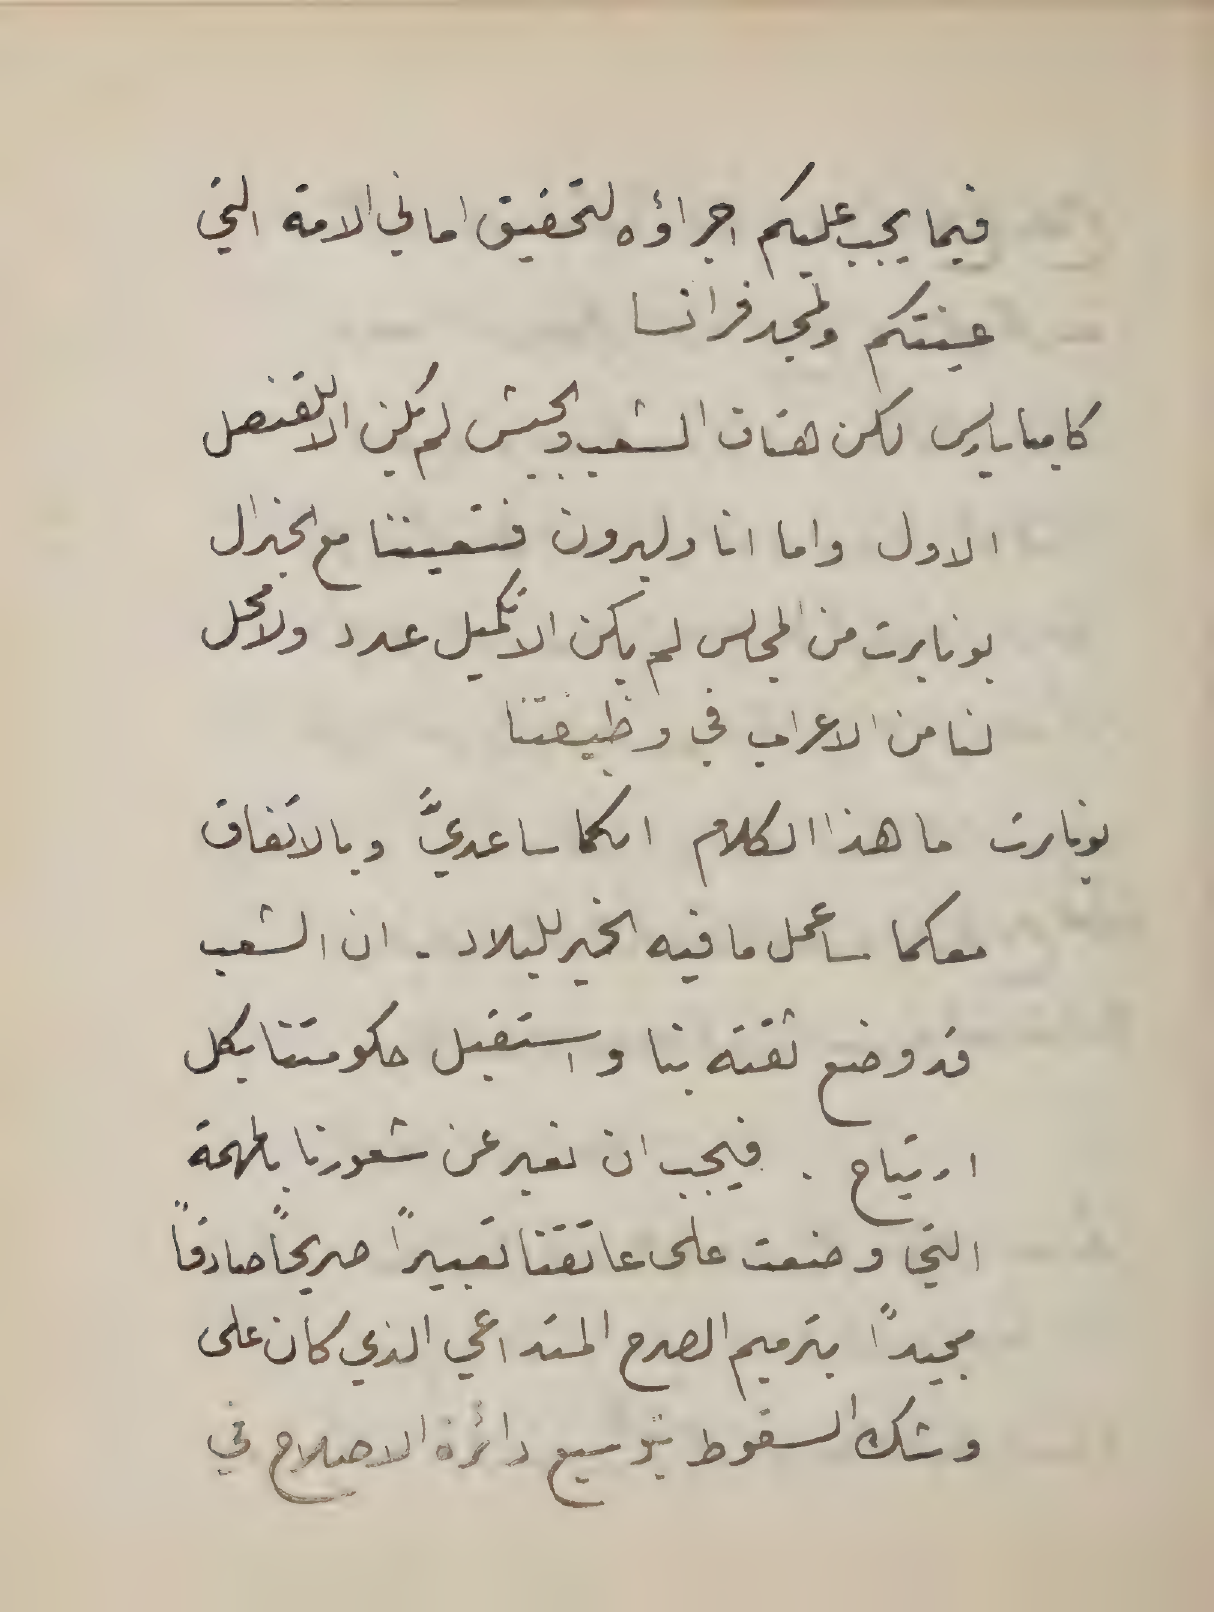 فيما يجب عليكم اجراؤه لتحقيق اماني الامة التي
عينتكم ولمجد فرانسا
كامباياريس لكن هتاف الشعب والجيش لم يكن الا للقنصل
الاول واما انا ولبرون فتعييننا مع الجنرال
بونابرت من المجلس لم يكن الا تكميل عدد ولا محل
لنا من الاعراب في وظيفتنا
بونابرت ما هذا الكلام انكما ساعديَّ وبالاتفاق
معكما ساعمل ما فيه الخير للبلاد . ان الشعب
قد وضع ثقته بنا واستقبل حكومتنا بكل
ارتياح . فيجب ان نعبر عن شعورنا بالمهمة
التي وضعت على عاتقنا تعبيراً صريحاً صادقاً
مجيداً بترميم الصرح المتداعي الذي كان على
وشك السقوط بتوسيع دائرة الاصلاح في